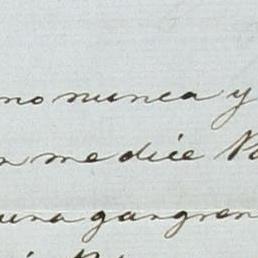 mo nunca y
n me dice
una gangren